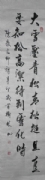 大雪壓青松青松挺且直
要知松高潔待到雪化時